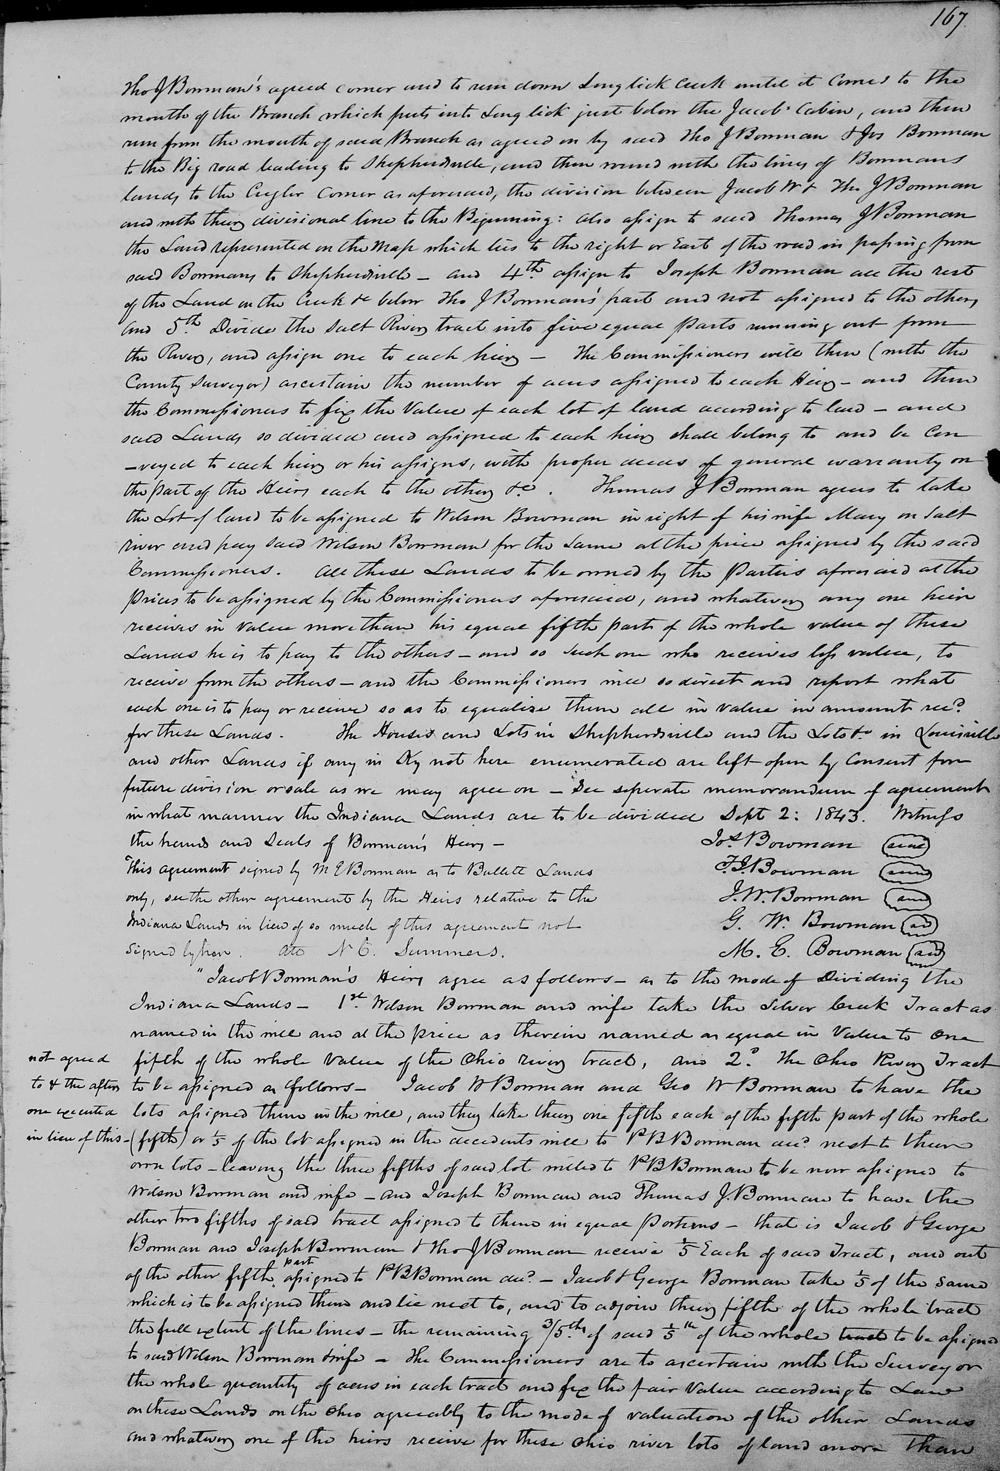 167
Tho J Bowman's agreed corner and to run down Long lick Creek until it comes to the
mouth of the Branch which puts into Long lick just below the Jacob Cabin, and then
run from the mouth of said Branch as agreed on by said Tho J Bowman & Jos Bowman
to the Big road leading to Shepherdsville, and then round with the lines of Bowmans
lands to the corner as aforesaid, the division between Jacob W & Tho J Bowman
and with their divisional line to the Beginning: also assign to said Thomas J Bowman
the Land represented on the Map which lies to the right or East of the road in passing from
said Bowmans to Shepherdsville – and 4th assign to Joseph Bowman all the rest
of the Land on the Creek &c below Tho J Bowman's part and not assigned to the others
and 5th Divide the Salt River tract into five equal parts running out from
the River, and assign one to each heir – The Commissioners will then (with the
County Surveyor) ascertain the number of acres assigned to each Heir – and then
the Commissioners to fix the Value of each lot of land according to law – and
said Lands so divided and assigned to each heir shall belong to and be con
-veyed to each heir or his assigns, with proper deeds of general warranty on
the part of the Heirs each to the other &c. Thomas J Bowman agrees to take
the Lot of land to be assigned to Wilson Bowman in right of his wife Mary on Salt
river and pay said Wilson Bowman for the same at the price assigned by the said
Commissioners. All these Lands to be owned by the Parties aforesaid at the
Prices to be assigned by the Commissioners aforesaid, and whatever any one heir
receives in value more than his equal fifth part of the whole value of these
Lands he is to pay to the others – and so such one who receives less value, to
receive from the others – and the Commissioners will so direct and report what
each one is to pay or receive so as to equalize them all in value in amount recd.
for these Lands. The Houses and Lots in Shepherdsville and the Lots &c in Louisville
and other Lands if any in Ky not here enumerated are left open by Consent for
future division or sale as we may agree on – See seperate memorandum of agreement
in what manner the Indiana Lands are to be divided Sept 2: 1843. Witness
the hands and Seals of Bowman's Heirs – Jos Bowman (seal)
This agreement signed by M E Bowman as to Bullitt Lands T. J. Bowman (seal)
only, see the other agreement by the Heirs relative to the J. W. Bowman (seal)
Indiana Lands in lieu of so much of this agreement not G. W. Bowman (seal)
signed by her. Att N C. Summers. M. E. Bowman (seal)
"Jacob Bowman's Heirs agree as follows – as to the mode of Dividing the
Indiana Lands – 1st Wilson Bowman and wife take the Silver Creek Tract as
named in the will and at the price as therein named as equal in Value to one
not agreed fifth of the whole Value of the Ohio river tract, and 2d The Ohio River Tract
to & the after to be assigned as follows – Jacob W Bowman and Geo W Bowman to have the
one executed lots assigned them in the will, and they take their one fifth each of the fifth part of the whole
in lieu of this – (fifth) or 1/5 of the lot assigned in the decedents will to P B Bowman decd next to their
own lots – leaving the three fifths of said lot willed to P B Bowman to be now assigned to
Wilson Bowman and wife – and Joseph Bowman and Thomas J. Bowman to have the
other two fifths of said tract assigned to them in equal portions – that is Jacob & George
Bowman and Joseph Bowman & Tho J Bowman receive 1/5 Each of said Tract, and out
of the other fifth part assigned to P B Bowman decd – Jacob & George Bowman take 1/5 of the same
which is to be assigned them and lie next to, and to adjoin their fifths of the whole tract
the full extent of the lines – the remaining 3/5ths of said 1/5th of the whole tract to be assigned
to said Wilson Bowman & wife – The Commissioners are to ascertain with the Surveyor
the whole quantity of acres in each tract and fix the fair Value according to Law
on these Lands on the Ohio agreeably to the mode of valuation of the other Lands
and whatever one of the heirs receive for these Ohio river lots of land more than